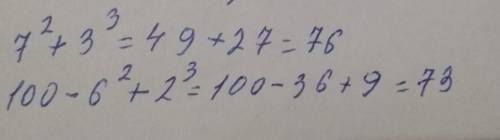 7² + 3³ = 49 + 27 = 76
100 - 6² + 2³ = 100 - 36 + 9 = 73